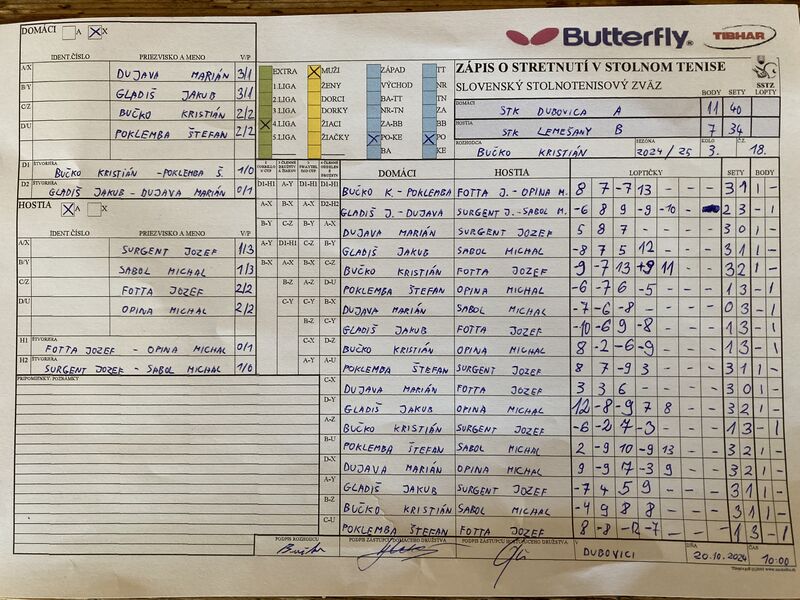 DOMÁCI A X
Butterfly
TIBHAR
IDENT.ČÍSLO PRIEZVISKO A MENO V/P
A/X DUJAVA MARIÁN 3/1
B/Y GLADIŠ JAKUB 3/1
C/Z BUČKO KRISTIÁN 2/2
D/U POKLEMBA ŠTEFAN 2/2
D1 ŠTVORHRA BUČKO KRISTIÁN - POKLEMBA Š. 1/0
D2 ŠTVORHRA GLADIŠ JAKUB - DUJAVA MARIÁN 0/1
HOSTIA A X
IDENT.ČÍSLO PRIEZVISKO A MENO V/P
A/X SURGENT JOZEF 1/3
B/Y SABOL MICHAL 1/3
C/Z FOTTA JOZEF 2/2
D/U OPINA MICHAL 2/2
H1 ŠTVORHRA FOTTA JOZEF - OPINA MICHAL 0/1
H2 ŠTVORHRA SURGENT JOZEF - SABOL MICHAL 1/0
PRIPOMIENKY/POZNÁMKY
EXTRA MUŽI ZÁPAD TT
1.LIGA ŽENY VÝCHOD NR
2.LIGA DORCI BA-TT TN
3.LIGA DORKY NR-TN ZA
4.LIGA ŽIACI ZA-BB BB
5.LIGA ŽIAČKY PO-KE PO
BA KE
ZÁPIS O STRETNUTÍ V STOLNOM TENISE
SLOVENSKÝ STOLNOTENISOVÝ ZVÄZ
SSTZ
BODY SETY LOPTY
DOMÁCI STK DUBOVICA A 11 40
HOSTIA STK LEMEŠANY B 7 34
ROZHODCA BUČKO KRISTIÁN SEZÓNA 2024/25 KOLO 3. Č.Z. 18.
DOMÁCI HOSTIA LOPTIČKY SETY BODY
BUČKO K. - POKLEMBA FOTTA J. - OPINA M. 8 7 -7 13 - 3 1 1 -
GLADIŠ J. - DUJAVA SURGENT J. - SABOL M. -6 8 9 -9 -10 - 2 3 - 1
DUJAVA MARIÁN SURGENT JOZEF 5 8 7 - - 3 0 1 -
GLADIŠ JAKUB SABOL MICHAL -8 7 5 12 - - 3 1 1 -
BUČKO KRISTIÁN FOTTA JOZEF 9 -7 13 +9 11 - - 3 2 1 -
POKLEMBA ŠTEFAN OPINA MICHAL -6 -7 6 -5 - - 1 3 - 1
DUJAVA MARIÁN SABOL MICHAL -7 -6 -8 - - - 0 3 - 1
GLADIŠ JAKUB FOTTA JOZEF -10 -6 9 -8 - - 1 3 - 1
BUČKO KRISTIÁN OPINA MICHAL 8 -2 -6 -9 - - 1 3 - 1
POKLEMBA ŠTEFAN SURGENT JOZEF 8 7 -9 3 - - 3 1 1 -
DUJAVA MARIÁN FOTTA JOZEF 3 3 6 - - - 3 0 1 -
GLADIŠ JAKUB OPINA MICHAL 12 -8 -9 7 8 - - 3 2 1 -
BUČKO KRISTIÁN SURGENT JOZEF -6 -2 7 -3 - - 1 3 - 1
POKLEMBA ŠTEFAN SABOL MICHAL 2 -9 10 -9 13 - - 3 2 1 -
DUJAVA MARIÁN OPINA MICHAL 9 -9 7 -3 9 - - 3 2 1 -
GLADIŠ JAKUB SURGENT JOZEF -7 4 5 9 - - 3 1 1 -
BUČKO KRISTIÁN SABOL MICHAL -4 9 8 8 - - 3 1 1 -
POKLEMBA ŠTEFAN FOTTA JOZEF 8 -8 -12 -7 - - 1 3 - 1
PODPIS ROZHODCU PODPIS ZÁSTUPCU DOMÁCEHO DRUŽSTVA PODPIS ZÁSTUPCU HOSTUJÚCEHO DRUŽSTVA V DUBOVICI DŇA 20.10.2024 ČAS 10:00